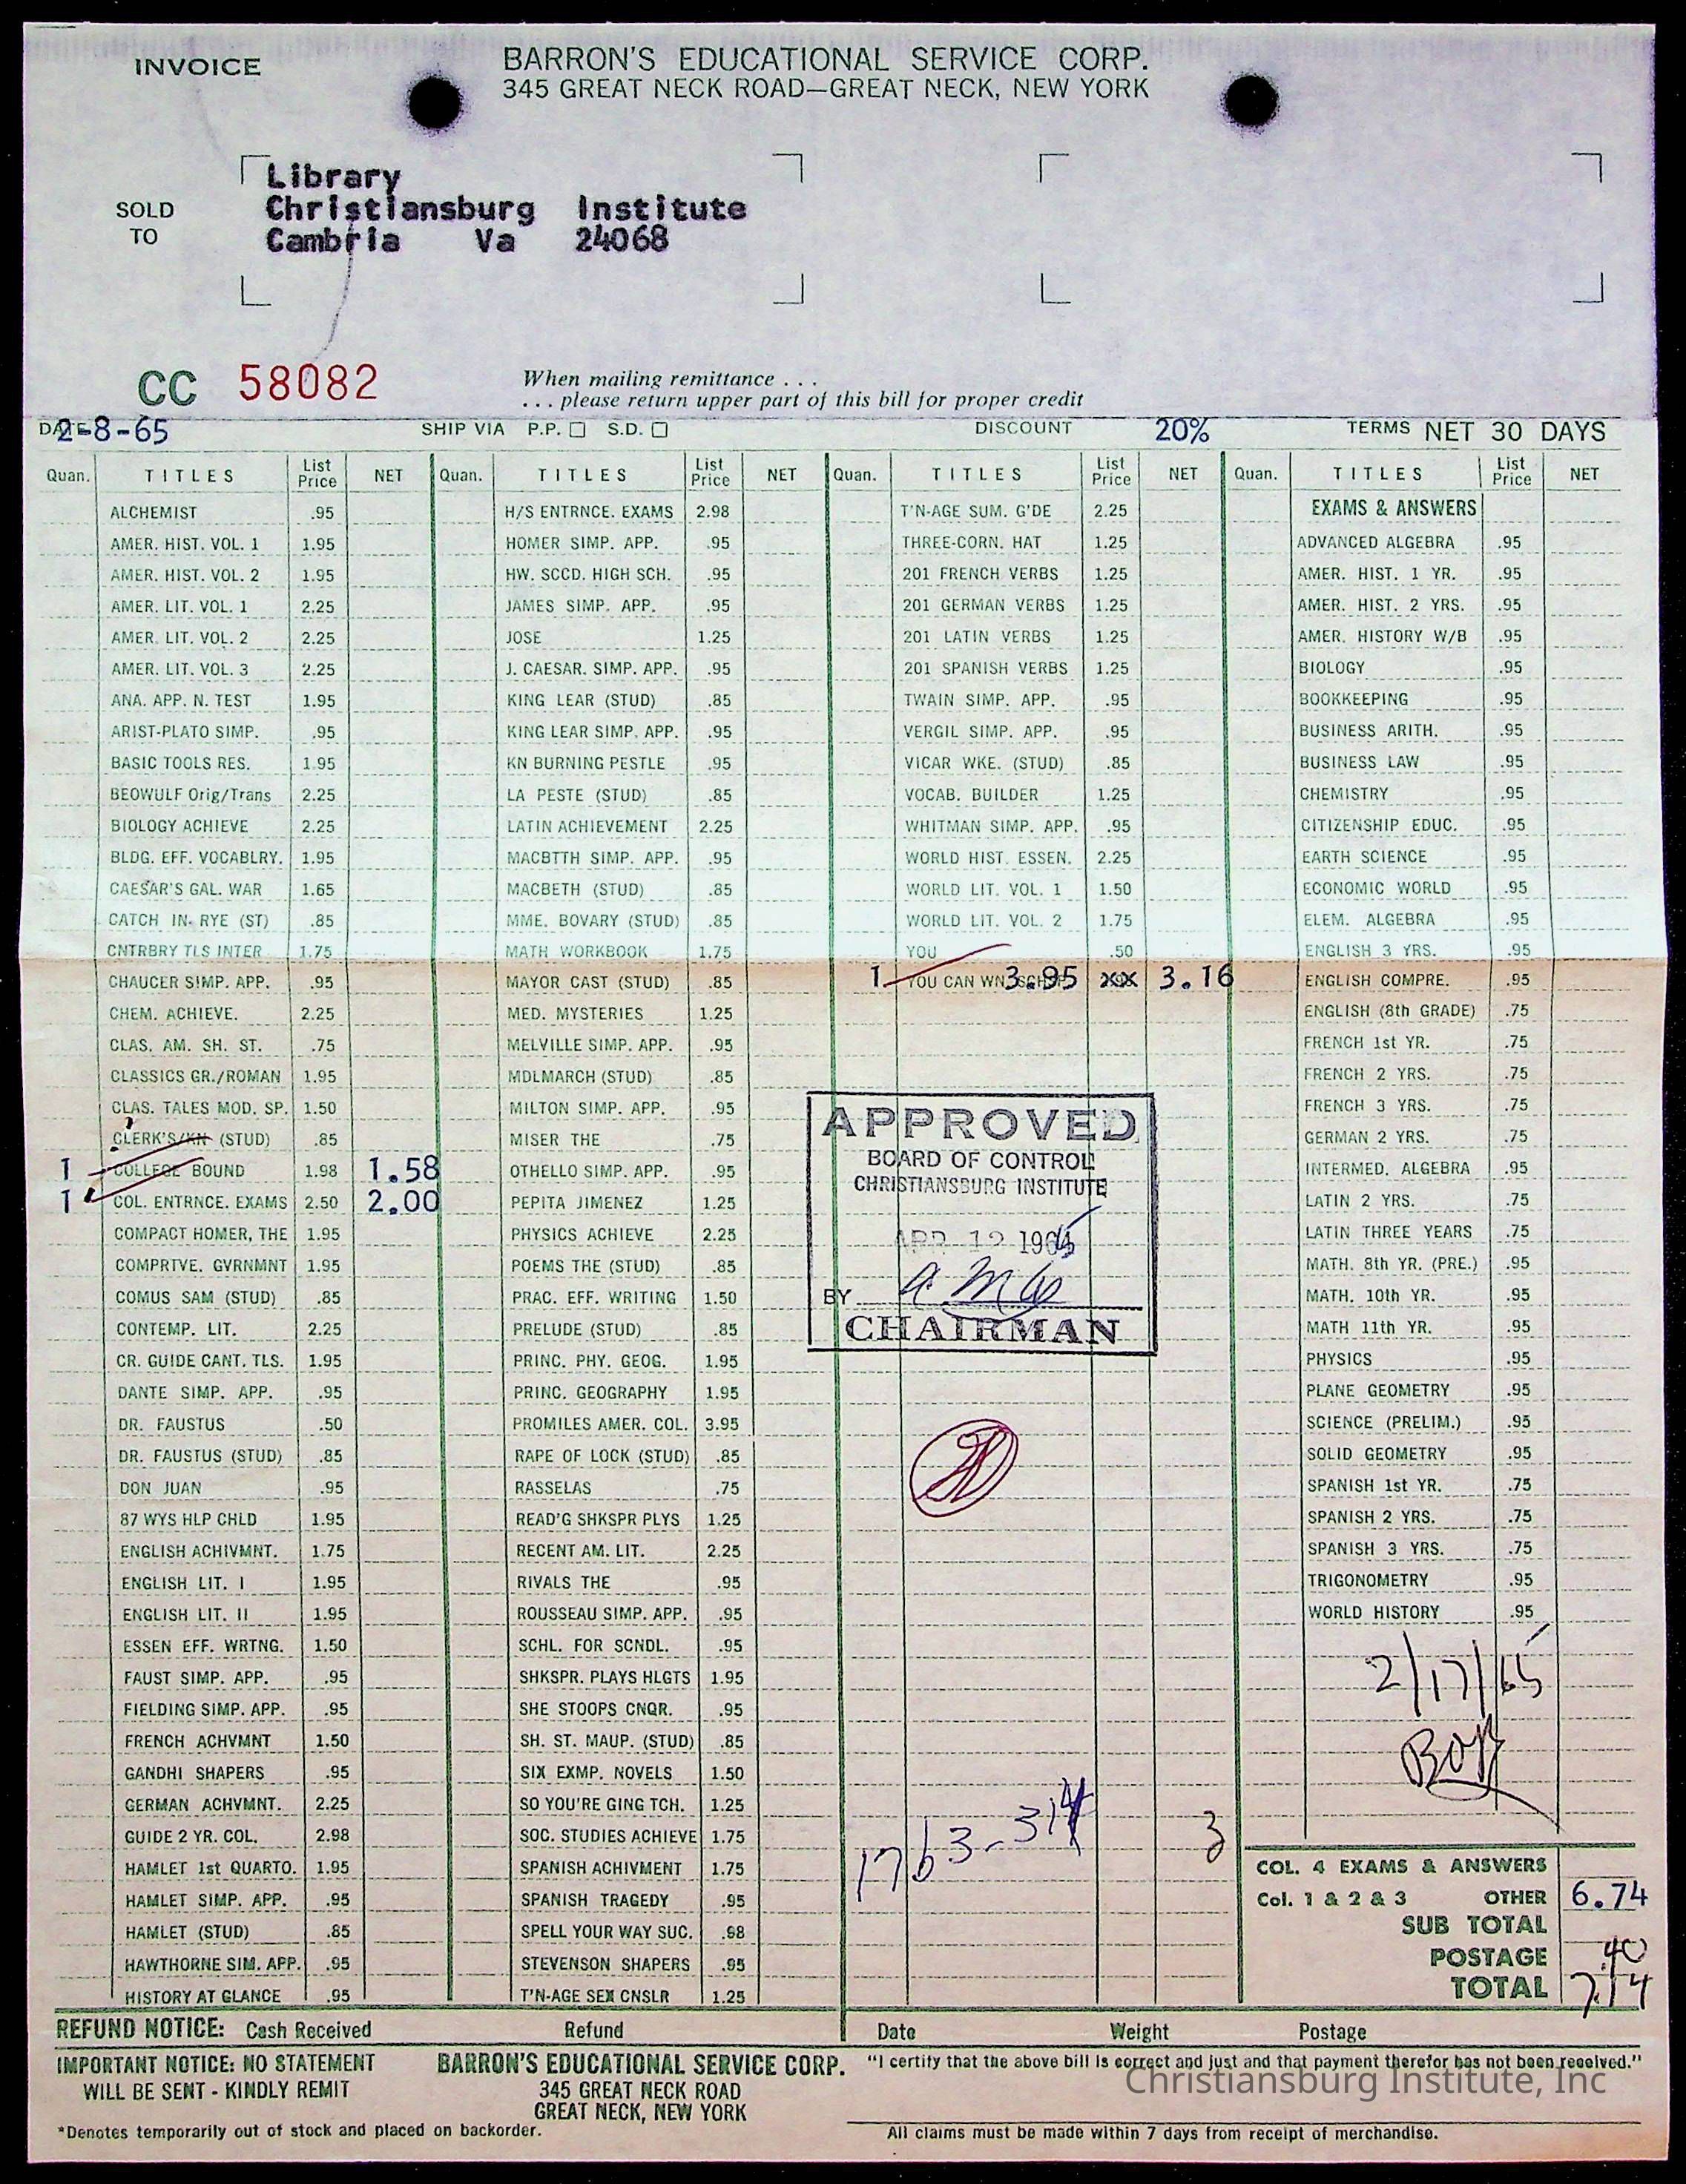 INVOICE
BARRON'S EDUCATIONAL SERVICE CORP.
345 GREAT NECK ROAD—GREAT NECK, NEW YORK
SOLD TO
Library
Christiansburg Institute
Cambria Va 24068
CC 58082
When mailing remittance . . .
. . . please return upper part of this bill for proper credit
DATE 2-8-65 SHIP VIA P.P. ☐ S.D. ☐ DISCOUNT 20% TERMS NET 30 DAYS
Quan. TITLES List Price NET
ALCHEMIST .95
AMER. HIST. VOL. 1 1.95
AMER. HIST. VOL. 2 1.95
AMER. LIT. VOL. 1 2.25
AMER. LIT. VOL. 2 2.25
AMER. LIT. VOL. 3 2.25
ANA. APP. N. TEST 1.95
ARIST-PLATO SIMP. .95
BASIC TOOLS RES. 1.95
BEOWULF Orig/Trans 2.25
BIOLOGY ACHIEVE 2.25
BLDG. EFF. VOCABLRY. 1.95
CAESAR'S GAL. WAR 1.65
CATCH IN- RYE (ST) .85
CNTRBRY TLS INTER 1.75
CHAUCER SIMP. APP. .95
CHEM. ACHIEVE. 2.25
CLAS. AM. SH. ST. .75
CLASSICS GR./ROMAN 1.95
CLAS. TALES MOD. SP. 1.50
CLERK'S/KN (STUD) .85
1 COLLEGE BOUND 1.98 1.58
1 COL. ENTRNCE. EXAMS 2.50 2.00
COMPACT HOMER, THE 1.95
COMPRTVE. GVRNMNT 1.95
COMUS SAM (STUD) .85
CONTEMP. LIT. 2.25
CR. GUIDE CANT. TLS. 1.95
DANTE SIMP. APP. .95
DR. FAUSTUS .50
DR. FAUSTUS (STUD) .85
DON JUAN .95
87 WYS HLP CHLD 1.95
ENGLISH ACHIVMNT. 1.75
ENGLISH LIT. I 1.95
ENGLISH LIT. II 1.95
ESSEN EFF. WRTNG. 1.50
FAUST SIMP. APP. .95
FIELDING SIMP. APP. .95
FRENCH ACHVMNT 1.50
GANDHI SHAPERS .95
GERMAN ACHVMNT. 2.25
GUIDE 2 YR. COL. 2.98
HAMLET 1st QUARTO. 1.95
HAMLET SIMP. APP. .95
HAMLET (STUD) .85
HAWTHORNE SIM. APP. .95
HISTORY AT GLANCE .95
Quan. TITLES List Price NET
H/S ENTRNCE. EXAMS 2.98
HOMER SIMP. APP. .95
HW. SCCD. HIGH SCH. .95
JAMES SIMP. APP. .95
JOSE 1.25
J. CAESAR. SIMP. APP. .95
KING LEAR (STUD) .85
KING LEAR SIMP. APP. .95
KN BURNING PESTLE .95
LA PESTE (STUD) .85
LATIN ACHIEVEMENT 2.25
MACBTTH SIMP. APP. .95
MACBETH (STUD) .85
MME. BOVARY (STUD) .85
MATH WORKBOOK 1.75
MAYOR CAST (STUD) .85
MED. MYSTERIES 1.25
MELVILLE SIMP. APP. .95
MDLMARCH (STUD) .85
MILTON SIMP. APP. .95
MISER THE .75
OTHELLO SIMP. APP. .95
PEPITA JIMENEZ 1.25
PHYSICS ACHIEVE 2.25
POEMS THE (STUD) .85
PRAC. EFF. WRITING 1.50
PRELUDE (STUD) .85
PRINC. PHY. GEOG. 1.95
PRINC. GEOGRAPHY 1.95
PROMILES AMER. COL. 3.95
RAPE OF LOCK (STUD) .85
RASSELAS .75
READ'G SHKSPR PLYS 1.25
RECENT AM. LIT. 2.25
RIVALS THE .95
ROUSSEAU SIMP. APP. .95
SCHL. FOR SCNDL. .95
SHKSPR. PLAYS HLGTS 1.95
SHE STOOPS CNQR. .95
SH. ST. MAUP. (STUD) .85
SIX EXMP. NOVELS 1.50
SO YOU'RE GING TCH. 1.25
SOC. STUDIES ACHIEVE 1.75
SPANISH ACHIVMENT 1.75
SPANISH TRAGEDY .95
SPELL YOUR WAY SUC. .98
STEVENSON SHAPERS .95
T'N-AGE SEX CNSLR 1.25
Quan. TITLES List Price NET
T'N-AGE SUM. G'DE 2.25
THREE-CORN. HAT 1.25
201 FRENCH VERBS 1.25
201 GERMAN VERBS 1.25
201 LATIN VERBS 1.25
201 SPANISH VERBS 1.25
TWAIN SIMP. APP. .95
VERGIL SIMP. APP. .95
VICAR WKE. (STUD) .85
VOCAB. BUILDER 1.25
WHITMAN SIMP. APP. .95
WORLD HIST. ESSEN. 2.25
WORLD LIT. VOL. 1 1.50
WORLD LIT. VOL. 2 1.75
YOU .50
1 YOU CAN WN 3.95 xx 3.16
APPROVED
BOARD OF CONTROL
CHRISTIANSBURG INSTITUTE
APR 12 1965
BY
CHAIRMAN
1763-314
3
Quan. TITLES List Price NET
EXAMS & ANSWERS
ADVANCED ALGEBRA .95
AMER. HIST. 1 YR. .95
AMER. HIST. 2 YRS. .95
AMER. HISTORY W/B .95
BIOLOGY .95
BOOKKEEPING .95
BUSINESS ARITH. .95
BUSINESS LAW .95
CHEMISTRY .95
CITIZENSHIP EDUC. .95
EARTH SCIENCE .95
ECONOMIC WORLD .95
ELEM. ALGEBRA .95
ENGLISH 3 YRS. .95
ENGLISH COMPRE. .95
ENGLISH (8th GRADE) .75
FRENCH 1st YR. .75
FRENCH 2 YRS. .75
FRENCH 3 YRS. .75
GERMAN 2 YRS. .75
INTERMED. ALGEBRA .95
LATIN 2 YRS. .75
LATIN THREE YEARS .75
MATH. 8th YR. (PRE.) .95
MATH. 10th YR. .95
MATH 11th YR. .95
PHYSICS .95
PLANE GEOMETRY .95
SCIENCE (PRELIM.) .95
SOLID GEOMETRY .95
SPANISH 1st YR. .75
SPANISH 2 YRS. .75
SPANISH 3 YRS. .75
TRIGONOMETRY .95
WORLD HISTORY .95
2/17/65
COL. 4 EXAMS & ANSWERS
Col. 1 & 2 & 3 OTHER 6.74
SUB TOTAL
POSTAGE .40
TOTAL 7.14
REFUND NOTICE: Cash Received Refund Date Weight Postage
IMPORTANT NOTICE: NO STATEMENT
WILL BE SENT - KINDLY REMIT
BARRON'S EDUCATIONAL SERVICE CORP.
345 GREAT NECK ROAD
GREAT NECK, NEW YORK
"I certify that the above bill is correct and just and that payment therefor has not been received."
Christiansburg Institute, Inc
*Denotes temporarily out of stock and placed on backorder.
All claims must be made within 7 days from receipt of merchandise.